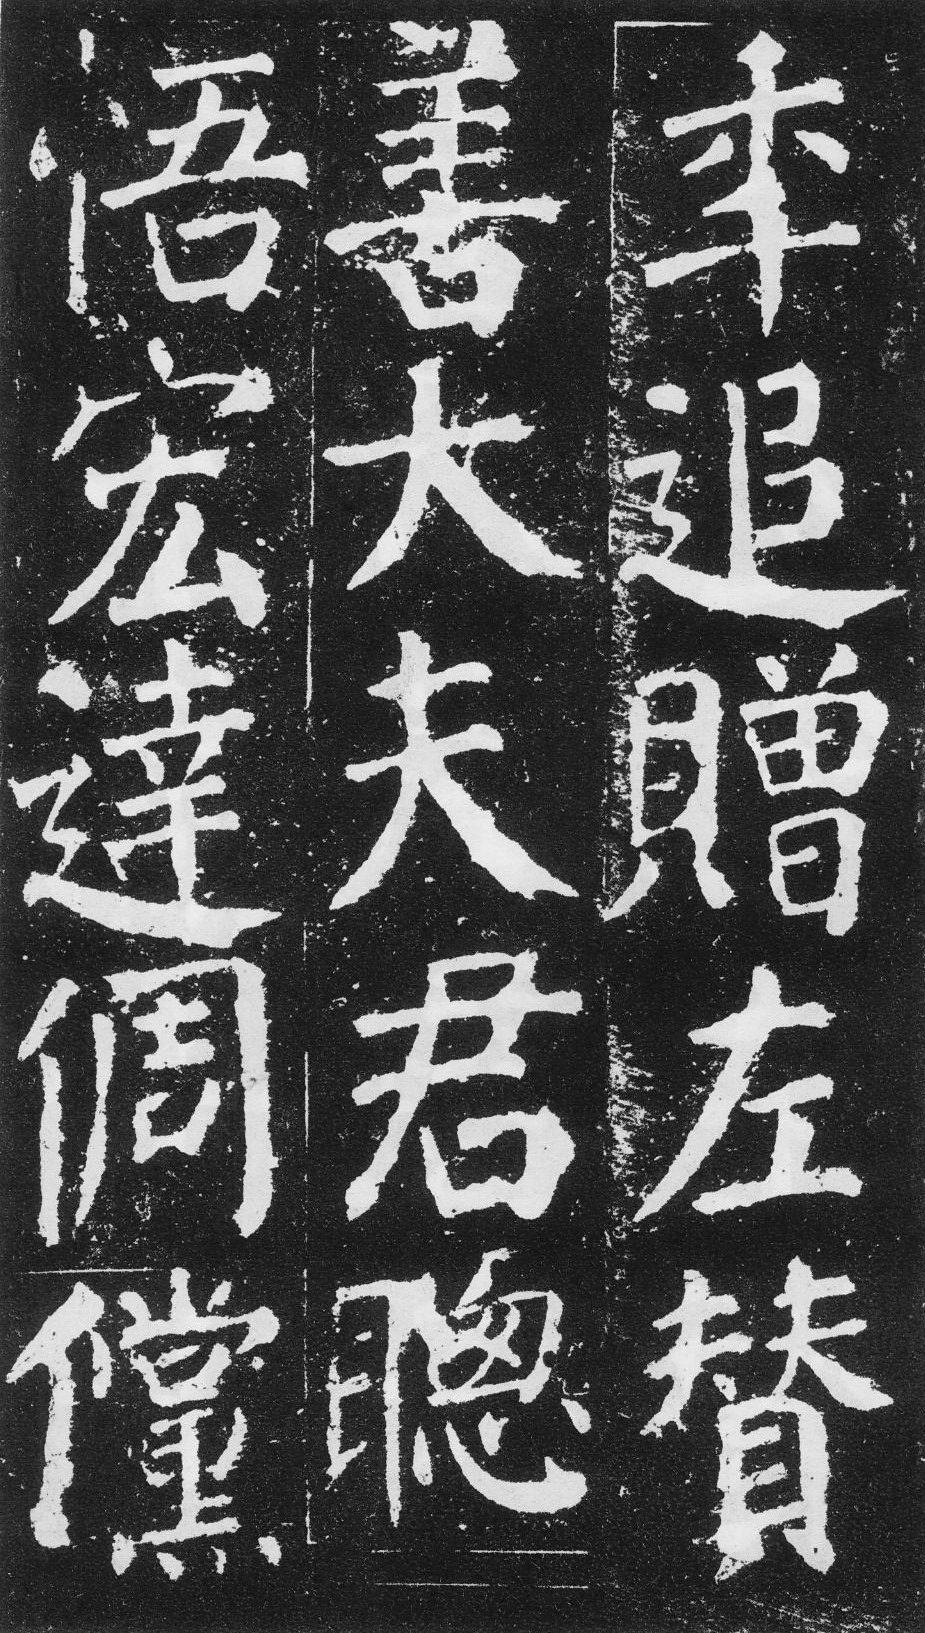 年追贈左賛
善大夫君聰
悟宏達倜儻